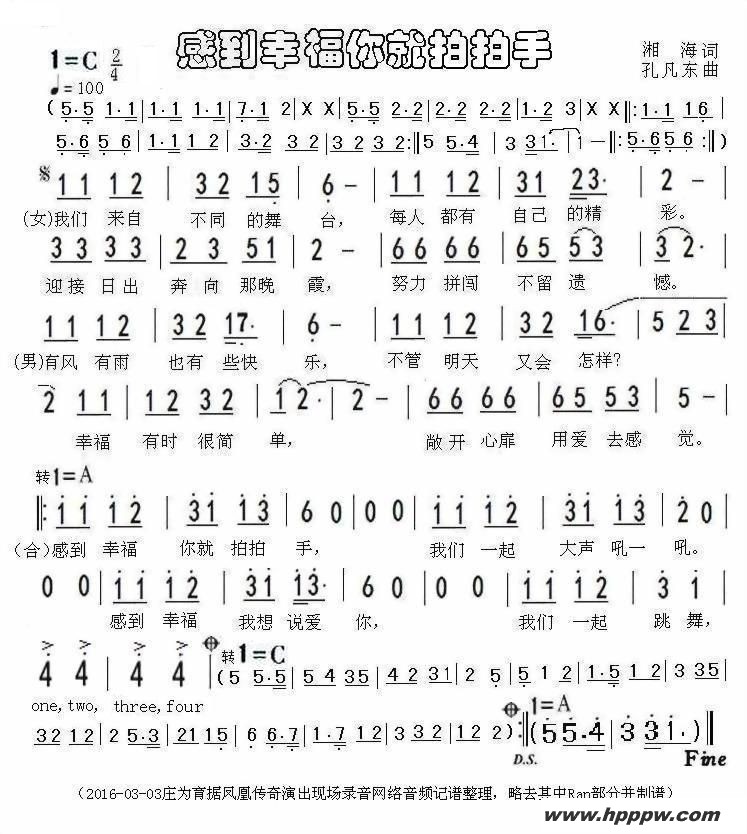 感到幸福你就拍拍手
1=C 2/4
♩=100
湘 海 词
孔凡东 曲
(5·5 1·1 | 1·1 1·1 | 7·1 2 | X X | 5·5 2·2 | 2·2 2·2 | 1·2 3 | X X ‖: 1·1 16 |
5·6 56 | 1·1 1 2 | 3·2 3 2 | 3 2 3 2 :‖ 5 5·4 | 3 3 1· | 1 — ‖: 5·6 5 6 :‖)
1 1 1 2 | 3 2 1 5 | 6 — | 1 1 1 2 | 3 1 2 3· | 2 — |
(女)我们 来自 不同 的舞 台, 每人 都有 自己 的精 彩。
3 3 3 3 | 2 3 5 1 | 2 — | 6 6 6 6 | 6 5 5 3 | 3 2· |
迎接 日出 奔向 那晚 霞, 努力 拼闯 不留 遗 憾。
1 1 1 2 | 3 2 1 7· | 6 — | 1 1 1 2 | 3 2 1 6· | 5 2 3 |
(男)有风 有雨 也有 些快 乐, 不管 明天 又会 怎样?
2 1 1 | 1 2 3 2 | 1 2· | 2 — | 6 6 6 6 | 6 5 3 5 | 5 — |
幸福 有时 很简 单, 敞开 心扉 用爱 去感 觉。
转1=A
‖: 1 1 1 2 | 3 1 1 3 | 6 0 | 0 0 | 1 1 1 2 | 3 1 3 | 2 0 |
(合)感到 幸福 你就 拍拍 手, 我们 一起 大声 吼一 吼。
0 0 | 1 1 1 2 | 3 1 1 3· | 6 0 | 0 0 | 1 1 1 2 | 3 1 |
感到 幸福 我想 说爱 你, 我们 一起 跳舞,
4 4 | 4 4 | 转1=C (5 5·5 | 5 4 35 | 42 31 | 5·5 5 | 1 2 | 1·5 1 2 | 3 5 |
one,two, three,four
32 12 | 3·5 2 | 21 15 | 6·6 6 | 7·1 6 | 1·7 1 2 | 3 3 2 | 1 2 ) :‖ 1=A (5 5·4 | 3 3 1· )‖
D.S. Fine
(2016-03-03庄为育据凤凰传奇演出现场录音网络音频记谱整理，略去其中Rap部分并制谱)
www.hpppw.com